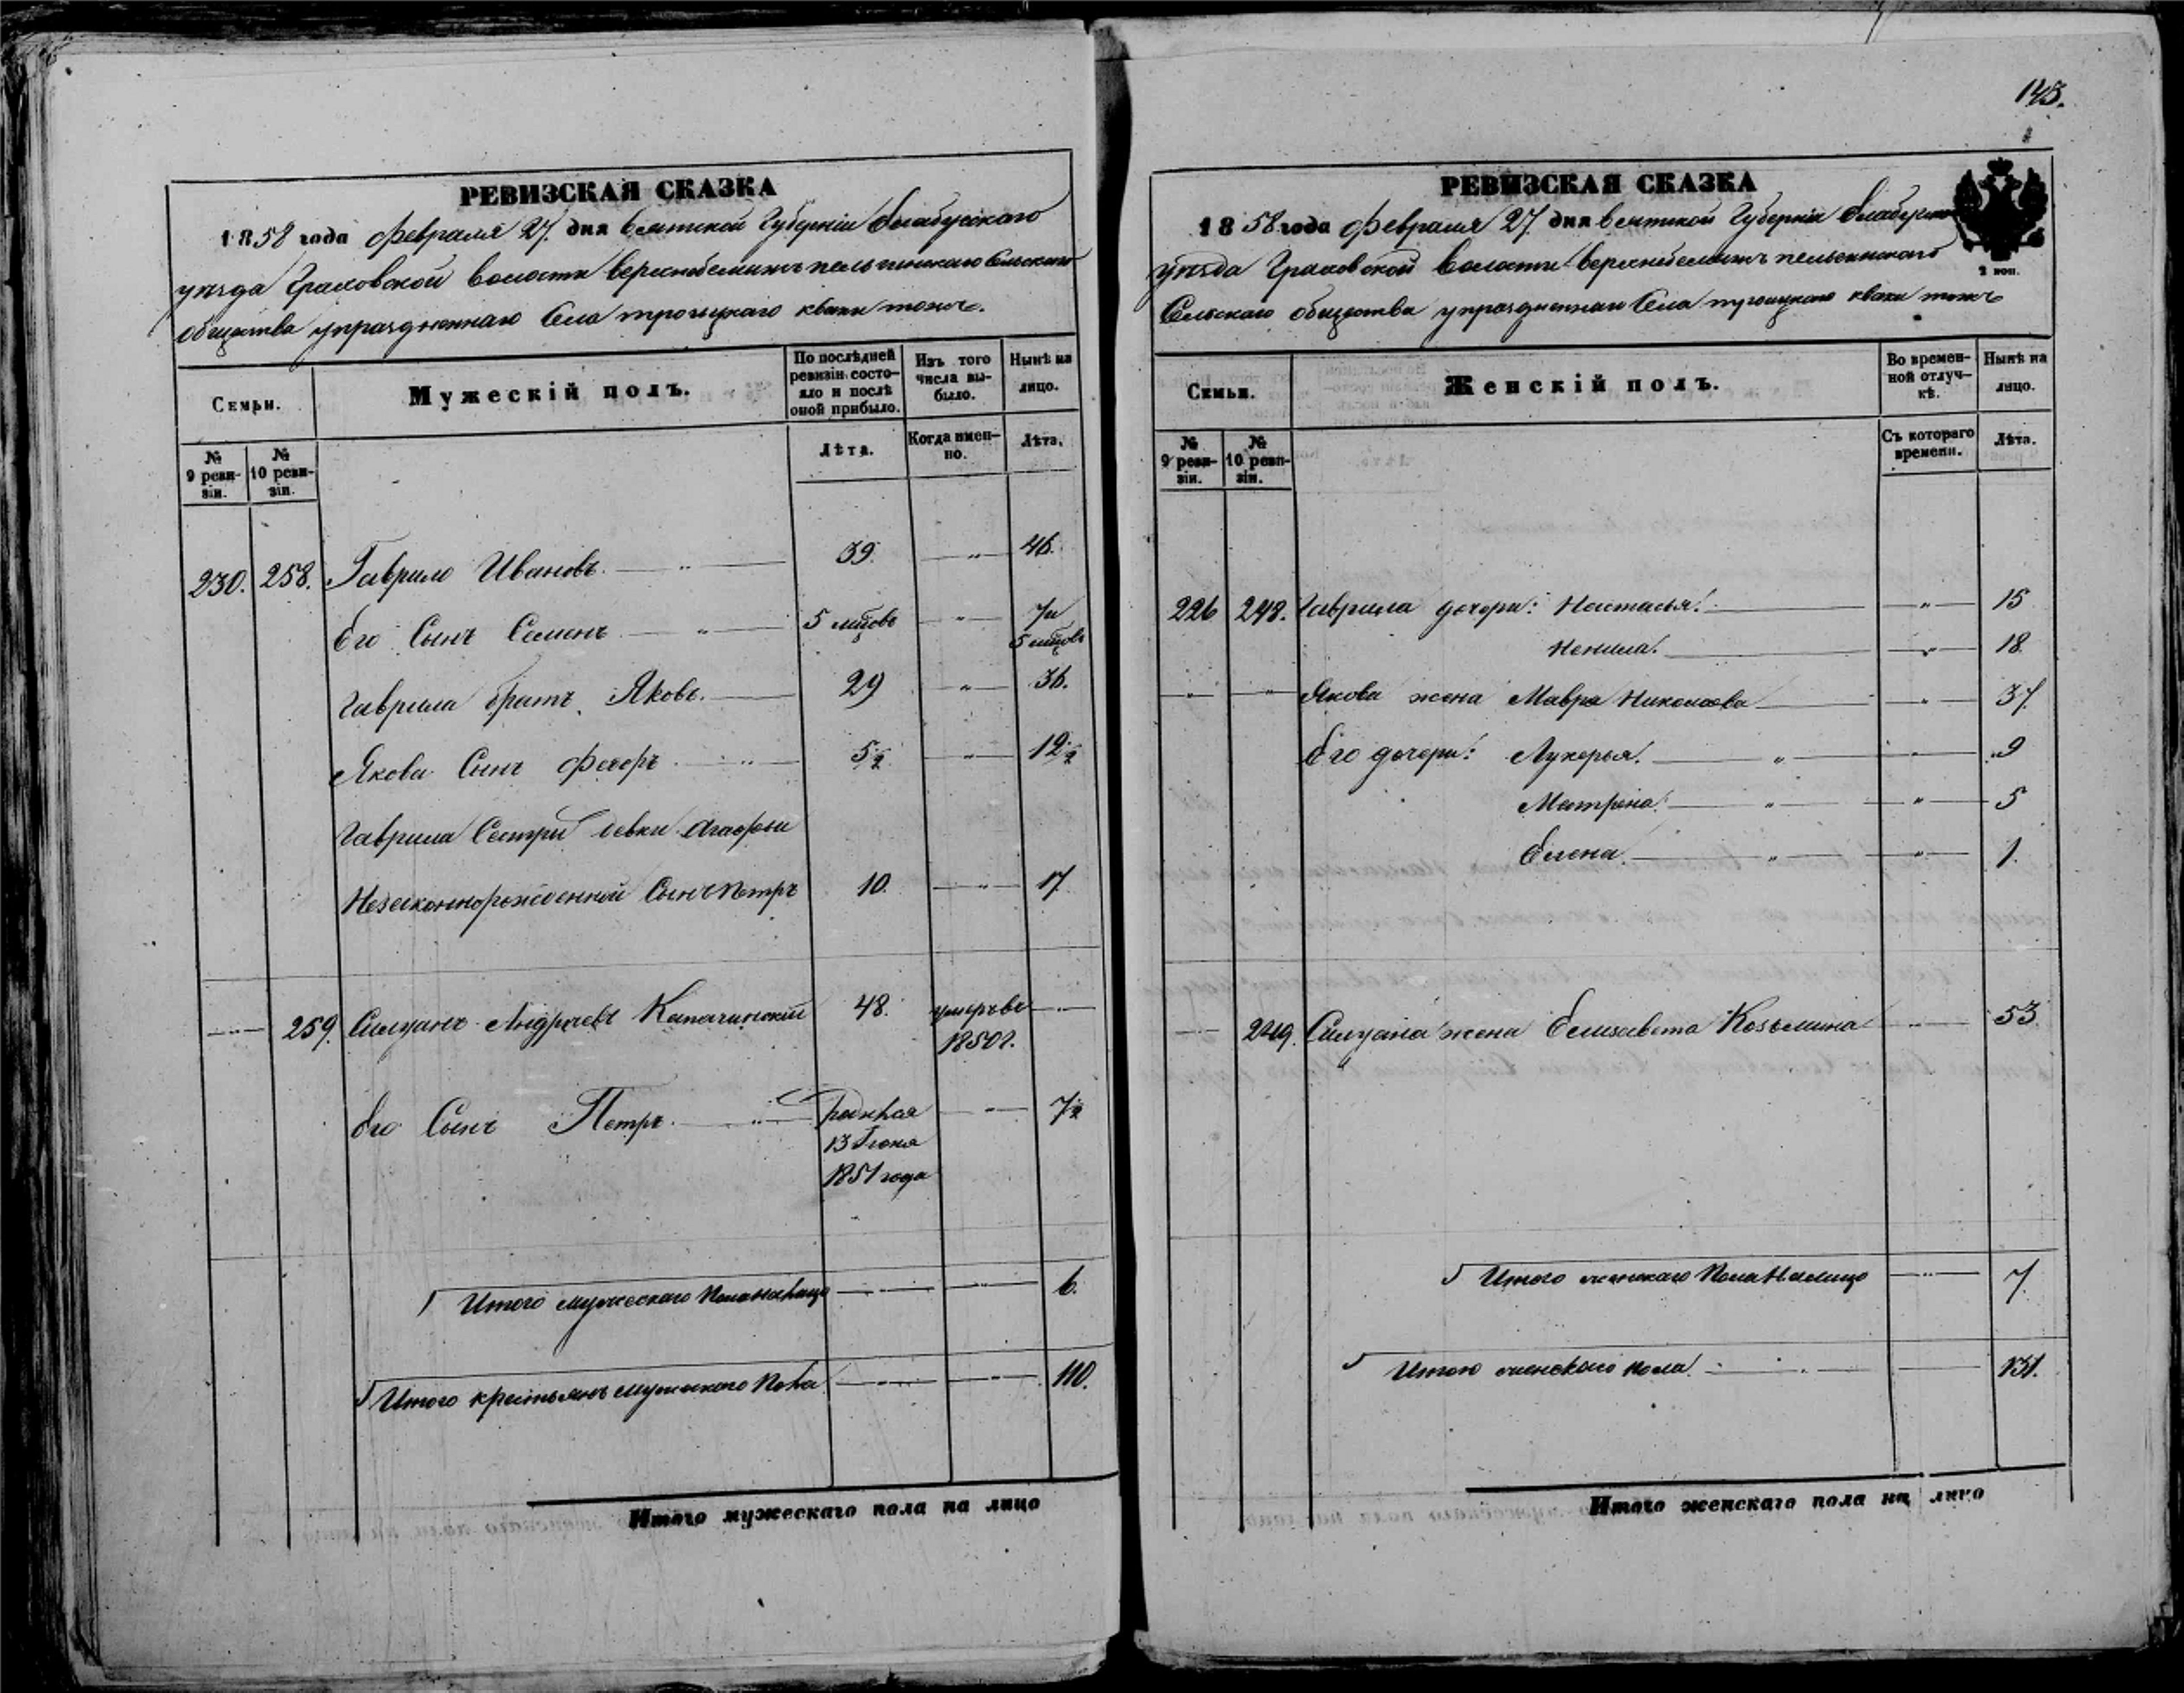 РЕВИЗСКАЯ СКАЗКА
1858 года Февраля 27. дня Вятской Губерніи Елабужскаго
уѣзда Граховской волости
общества упраздненнаго Села троицкаго кваки тожъ.
Семьи.
Мужескій полъ.
По послѣдней ревизіи состояло и послѣ оной прибыло.
Изъ того числа выбыло.
Нынѣ на лицо.
№ 9 ревизіи.
№ 10 ревизіи.
Лѣта.
Когда именно.
Лѣта.
230. 258. Гаврило Ивановъ. — „ — 39. — „ — 46.
Его Сынъ Семенъ — „ — 5 мцовъ — „ — 7 и
5 мцовъ
Гаврила братъ Яковъ. — 29 — „ — 36.
Якова Сынъ Федоръ — „ — 5½ — „ — 12½
Гаврила Сестры девки Агафьи
Незаконнорожденной Сынъ Петръ 10. — „ — 17
— „ — 259. Силуанъ Андреевъ 48. умеръ въ — „ —
1850 г.
Его Сынъ Петръ. — „ — 13 Іюня — „ — 7½
1851 года
Итого мужескаго пола налицо — „ — — „ — 6.
Итого крестьянъ мужескаго пола — „ — — „ — 110.
Итого мужескаго пола на лицо
145.
РЕВИЗСКАЯ СКАЗКА
2 коп.
1858 года Февраля 27. дня Вятской Губерніи
уѣзда Граховской Волости
Сельскаго общества упраздненнаго Села троицкаго кваки тожъ
Семьи.
Женскій полъ.
Во временной отлучкѣ.
Нынѣ на лицо.
№ 9 ревизіи.
№ 10 ревизіи.
Съ котораго времени.
Лѣта.
226 248. Гаврила дочери: Настасья. — „ — 15
Ненила. — „ — 18
— „ — — „ — Якова жена Мавра Николаева — „ — 37.
Его дочери: Лукерья. — „ — „ — 9
Матрена. — „ — „ — 5
Елена. — „ — „ — 1.
— „ — 249. Силуана жена Елизавета Козьмина — „ — 53.
Итого женскаго пола Налицо — „ — 7.
Итого женскаго пола — „ — 131.
Итого женскаго пола на лицо